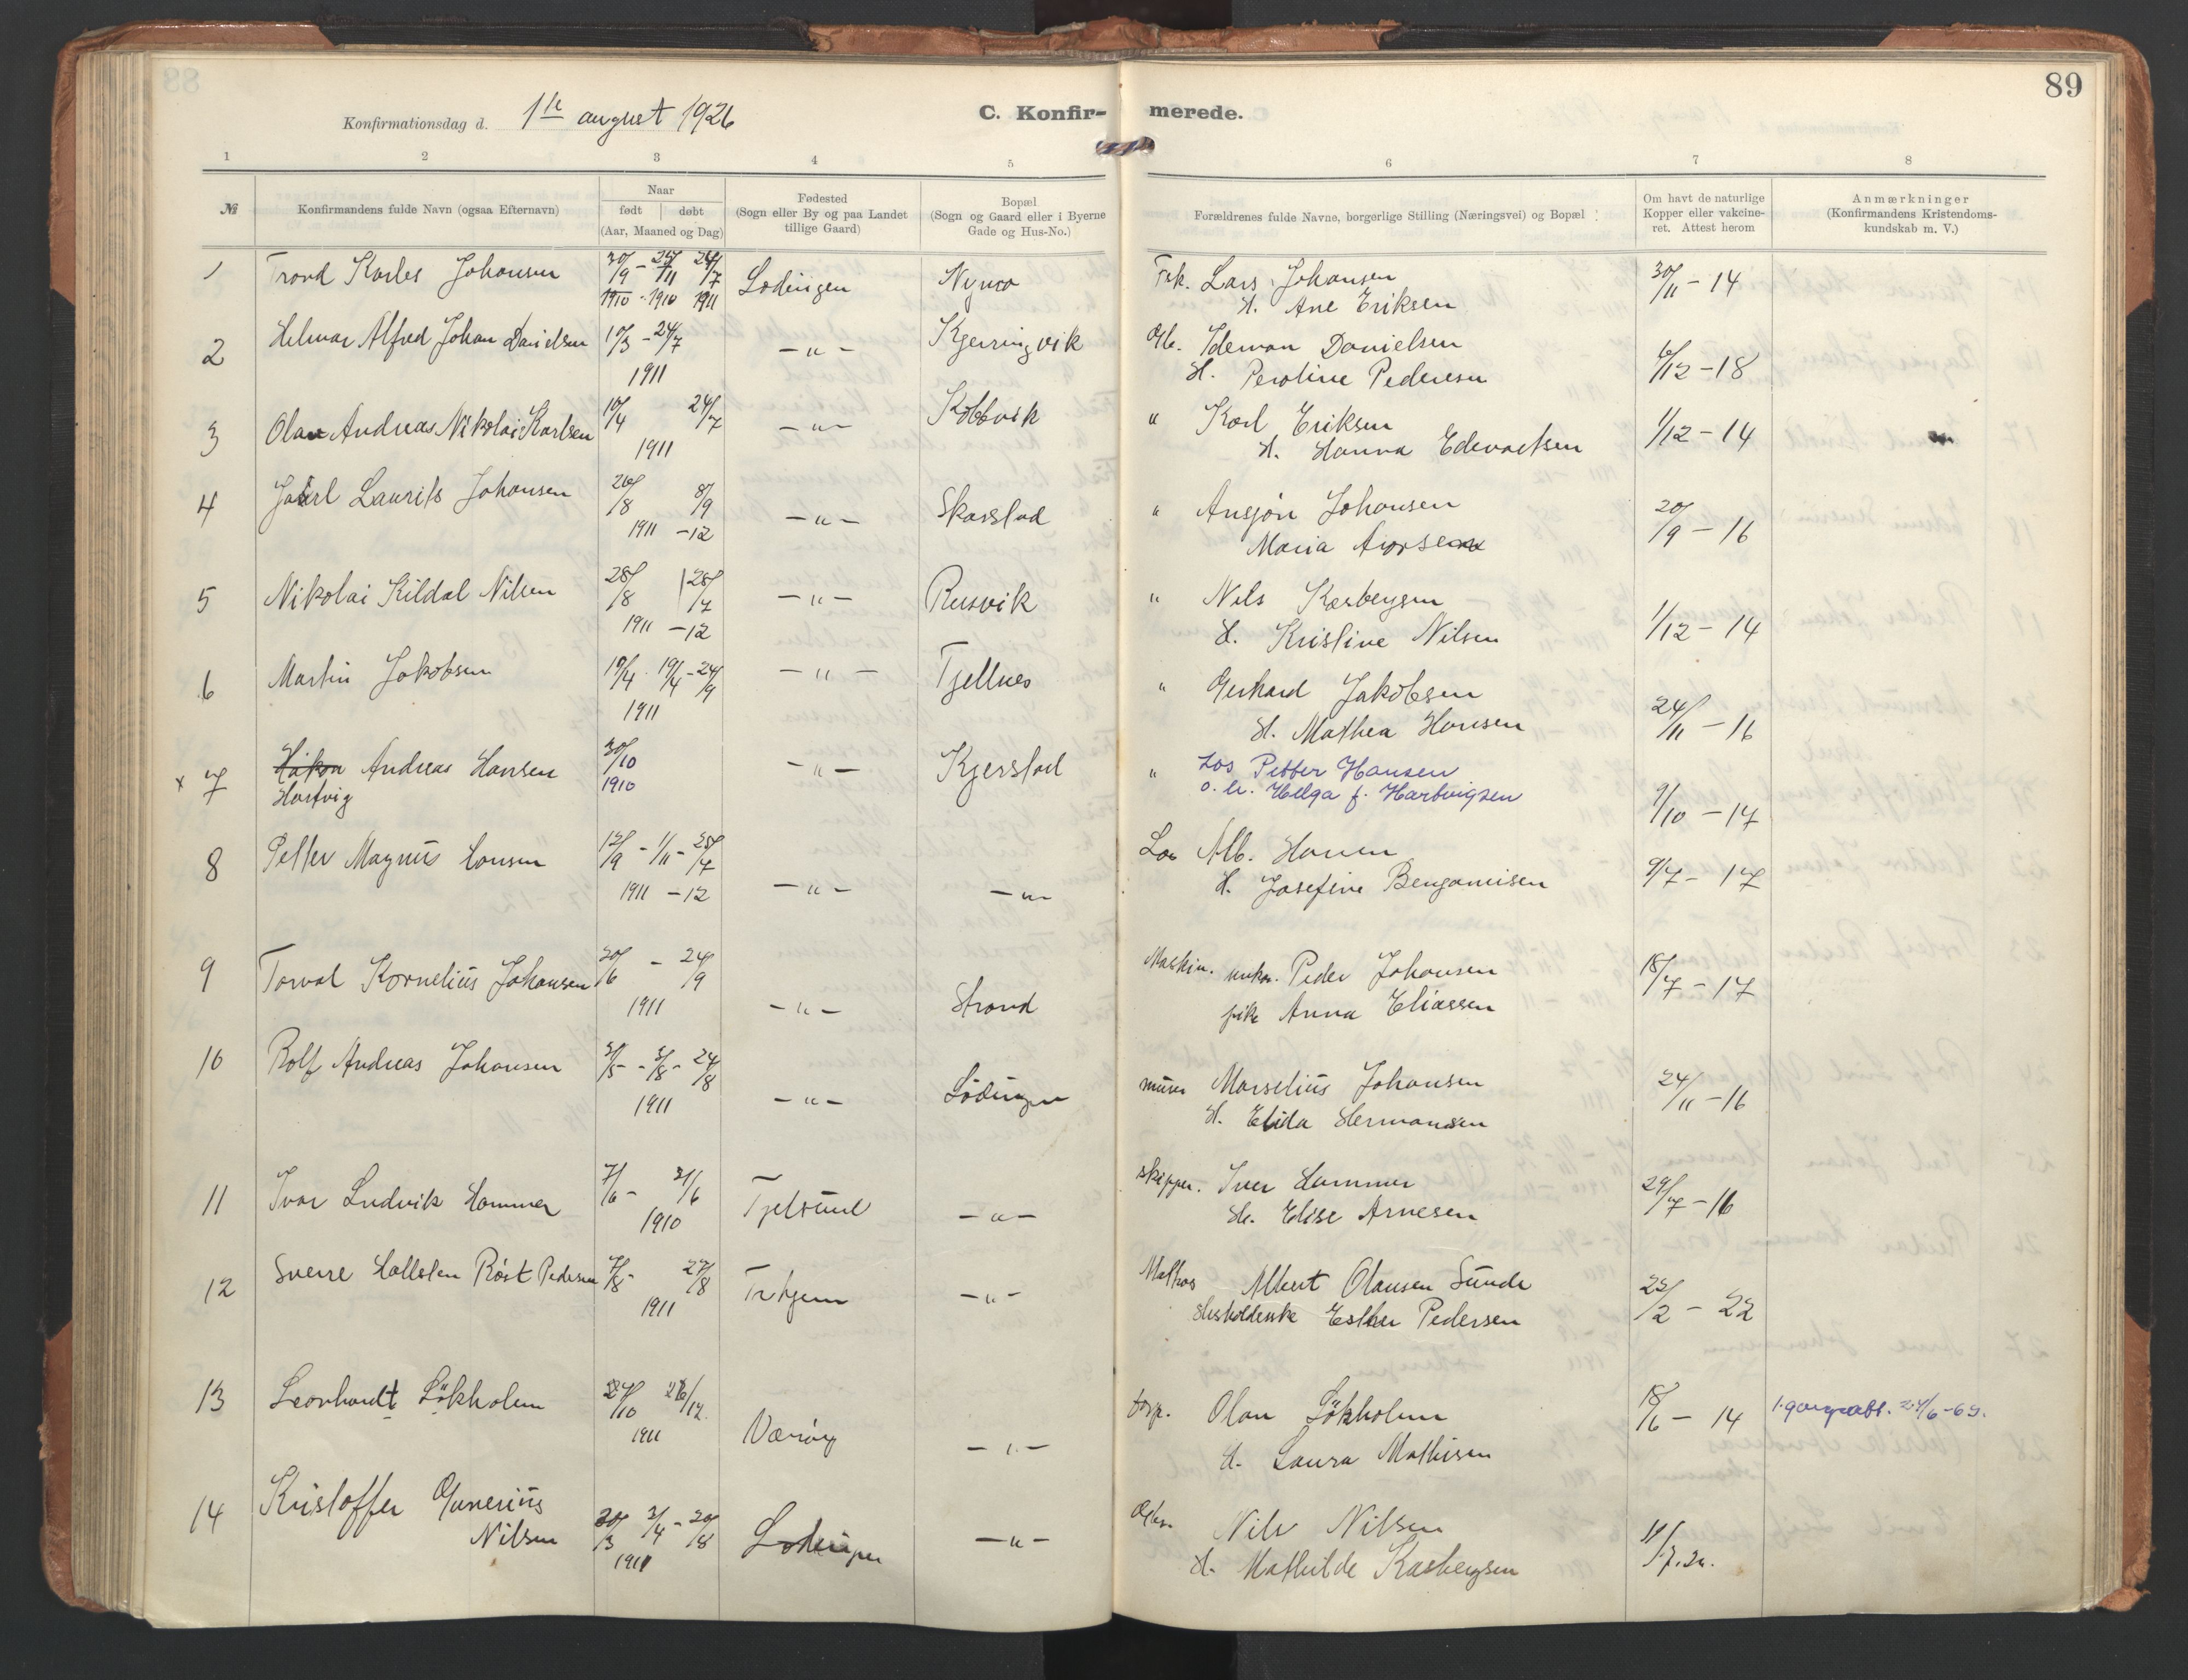 89
Konfirmationsdag d. 1ste august 1926
C. Konfir- merede.
1 2 3 4 5 6 7 8
№ Konfirmandens fulde Navn (ogsaa Efternavn) Naar født døbt (Aar, Maaned og Dag) Fødested (Sogn eller By og paa Landet tillige Gaard) Bopæl (Sogn og Gaard eller i Byerne Gade og Hus-No.) Forældrenes fulde Navne, borgerlige Stilling (Næringsvei) og Bopæl Om havt de naturlige Kopper eller vakcineret. Attest herom Anmærkninger (Konfirmandens Kristendomskundskab m. V.)
1 Trond Karles Johansen 30/9 - 25/11 24/7 Lødingen Fisk. Lars Johansen 30/11 - 14
1910 - 1910 1911 H. Ane Eriksen
2 Helmar Alfred Johan Danielsen 10/3 - 24/7 - " - Kjerringvik Gbr. Ideman Danielsen 6/12 - 18
1911 H. Peroline Pedersen
3 Olav Andreas Nikolai Karlsen 10/4 24/7 - " - Kobbvik " Karl Eriksen 1/12 - 14
1911 H. Hanna Edevartsen
4 Jarl Laurits Johansen 26/8 8/9 - " - Skarstad " Ansjøn Johansen 20/9 - 16
1911 - 12 Maria
5 Nikolai Kildal Nilsen 28/8 28/7 - " - Rusvik " Nils Karbergsen 1/12 - 14
1911 - 12 H. Kristine Nilsen
6 Martin Jakobsen 10/4 19/4 - 24/9 - " - Tjellnes " Gerhard Jakobsen 24/11 - 16
1911 H. Mathea Hansen
x 7 Håkon Andreas Hansen 30/10 - " - Kjerstad " Los Petter Hansen 9/10 - 17
Hartvig 1910 o. h. Helga f. Hartvigsen
8 Petter Magnus Hansen 12/9 - 1/11 - 28/7 - " - - " - Los Alb. Hansen 9/7 - 17
1911 - 12 H. Josefine Benjamisen
9 Torval Kornelius Johansen 30/6 - 24/9 - " - Strand Maskin. unkar. Peder Johansen 18/7 - 17
1911 pike Anna Eliassen
10 Rolf Andreas Johansen 3/5 - 3/8 - 24/8 - " - Lødingen murer Marselius Johansen 24/11 - 16
1911 H. Elida Hermansen
11 Ivar Ludvik Hammer 7/6 - 21/6 Tjelsund - " - skipper. Iver Hammer 29/7 - 16
1910 H. Elise Arnesen
12 Sverre Hallsten Røst Pedersen 7/8 - 27/8 Trhjem - " - Matros Albert Olausen Sunde 22/2 - 22
1911 Husholderske Esther Pedersen
13 Leonhardt Løkholm 24/10 26/12 Værøy - " - Olan Løkholm 18/6 - 14 1. gangsatt. 24/6 - 69.
1911 H. Laura Mathisen
14 Kristoffer Gunerius 30/3 2/4 - 20/8 Lødingen - " - Gbr. Nils Nilsen
Nilsen 1911 H. Mathilde Karbergsen